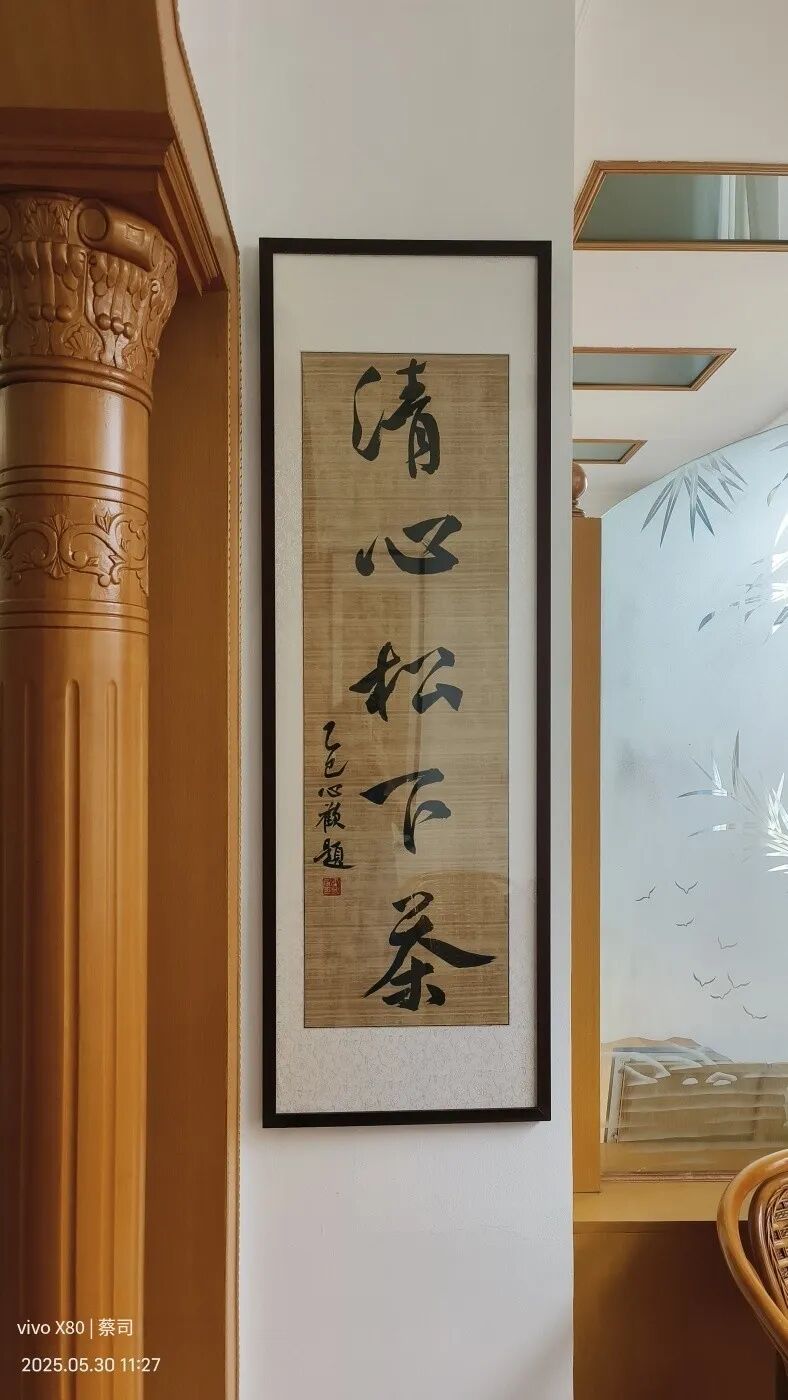 清心松下茶
乙巳心观題
vivo X80 | 蔡司
2025.05.30 11:27